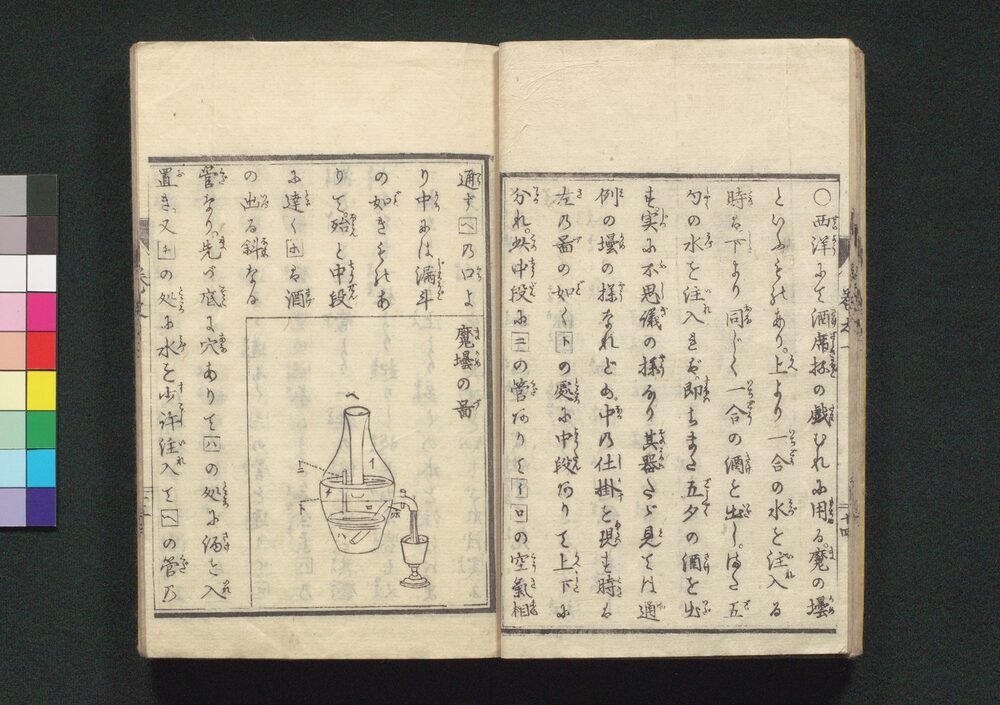 ○西洋にて酒席抔の戯むれに用る魔の壜
といふものあり上より一合の水を注入る
時は下より同じく一合の酒を出しまた五
勺の水を注入れば即ちまた五夕の酒を出
す実に不思儀の様なり其器たゞ見ては通
例の壜の様なれども中の仕掛を現す時は
左の啚の如く ト の處に中段ありて上下に
分れ此中段に ニ の管ありて イ ロ の空氣相
通ず ヘ の口よ
り中には漏斗
の如きものあ
りて殆と中段
に達く ホ は酒
の出る斜なる
管なり先づ底に穴ありて ハ の処に酒を入
置き又 チ の処に水を少許注入て ヘ の管乃
魔壜の啚
ヘ
イ
ニ
ト
ハ